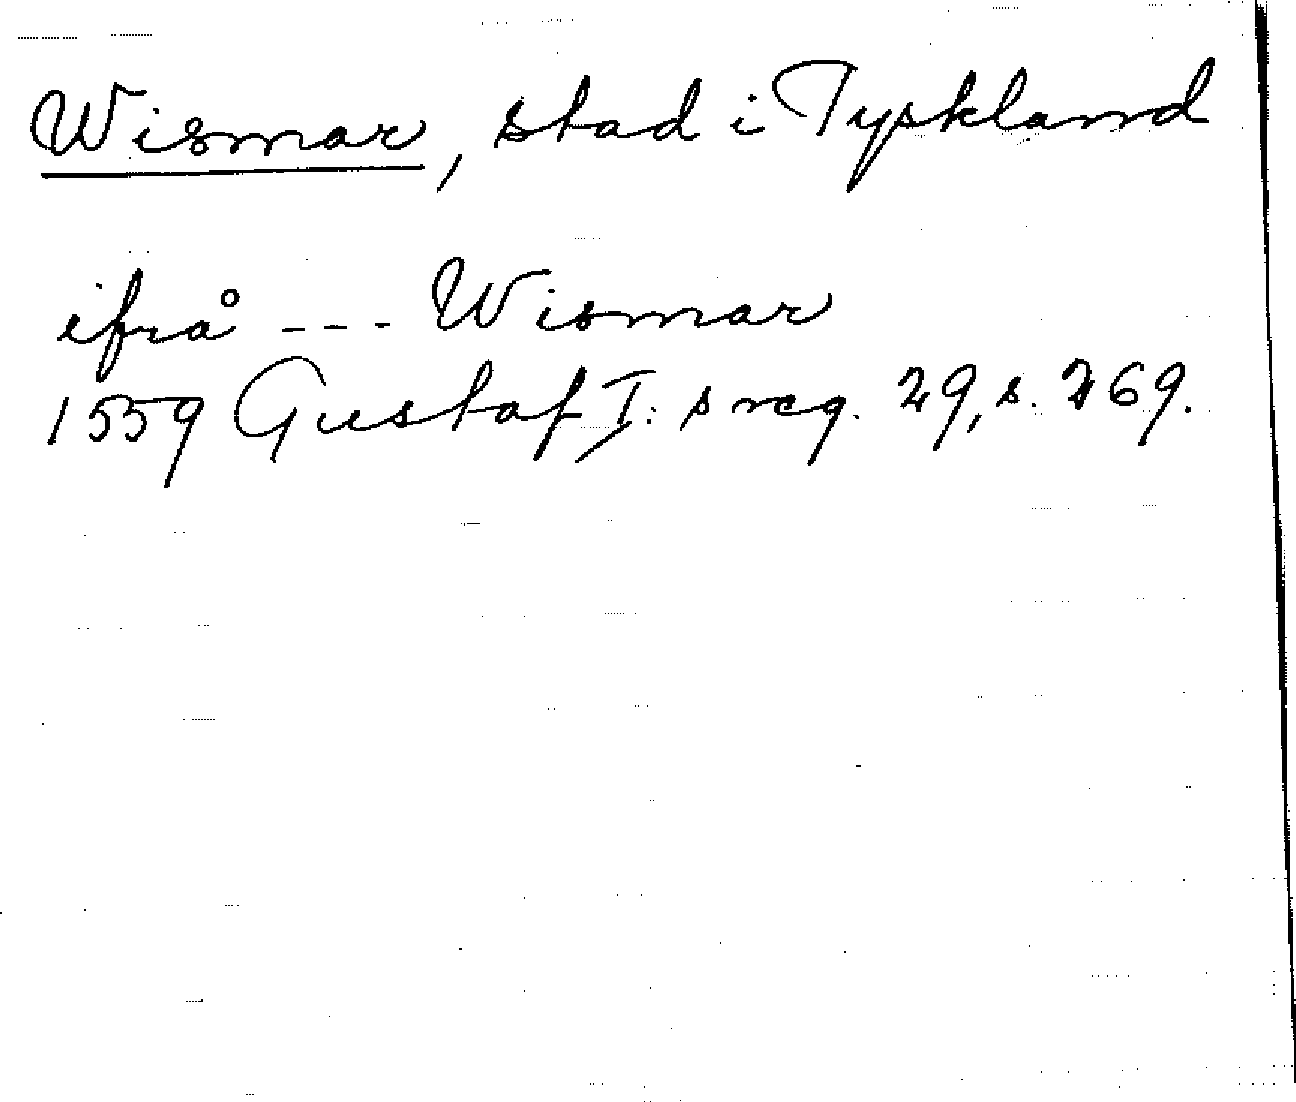 Wismar, stad i Tyskland
ifrå --- Wismar
1559 Gustaf I:s reg. 29, s. 269.